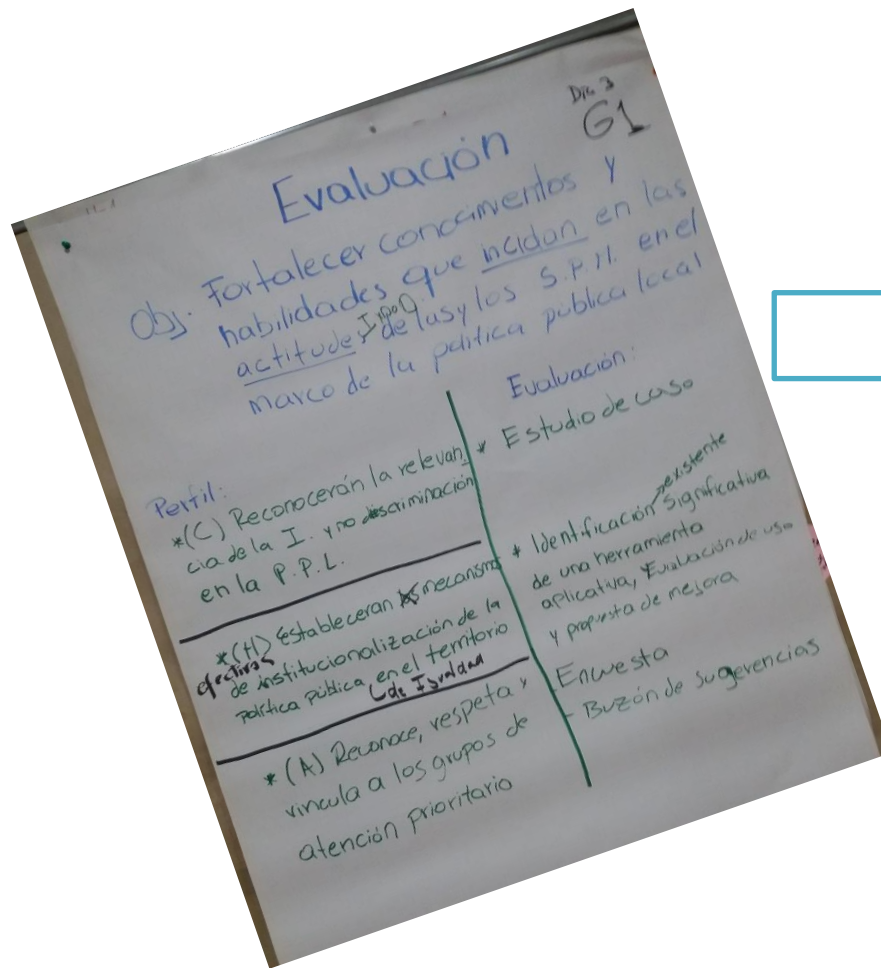 Dic 3
G1
Evaluación
Obj. Fortalecer conocimientos y
habilidades que incidan en las
actitudes de las y los S.P.N. en el
marco de la política pública local
Perfil:
*(C) Reconocerán la relevan
cia de la I. y no discriminación
en la P.P.L.
*(H) Estableceran mecanismos
efectivos de institucionalización de la
política pública en el territorio
de Igualdad
*(A) Reconoce, respeta y
vincula a los grupos de
atención prioritario
Evaluación:
* Estudio de caso
existente
* Identificación significativa
de una herramienta
aplicativa, Evaluación de uso
y propuesta de mejora
- Encuesta
- Buzón de sugerencias